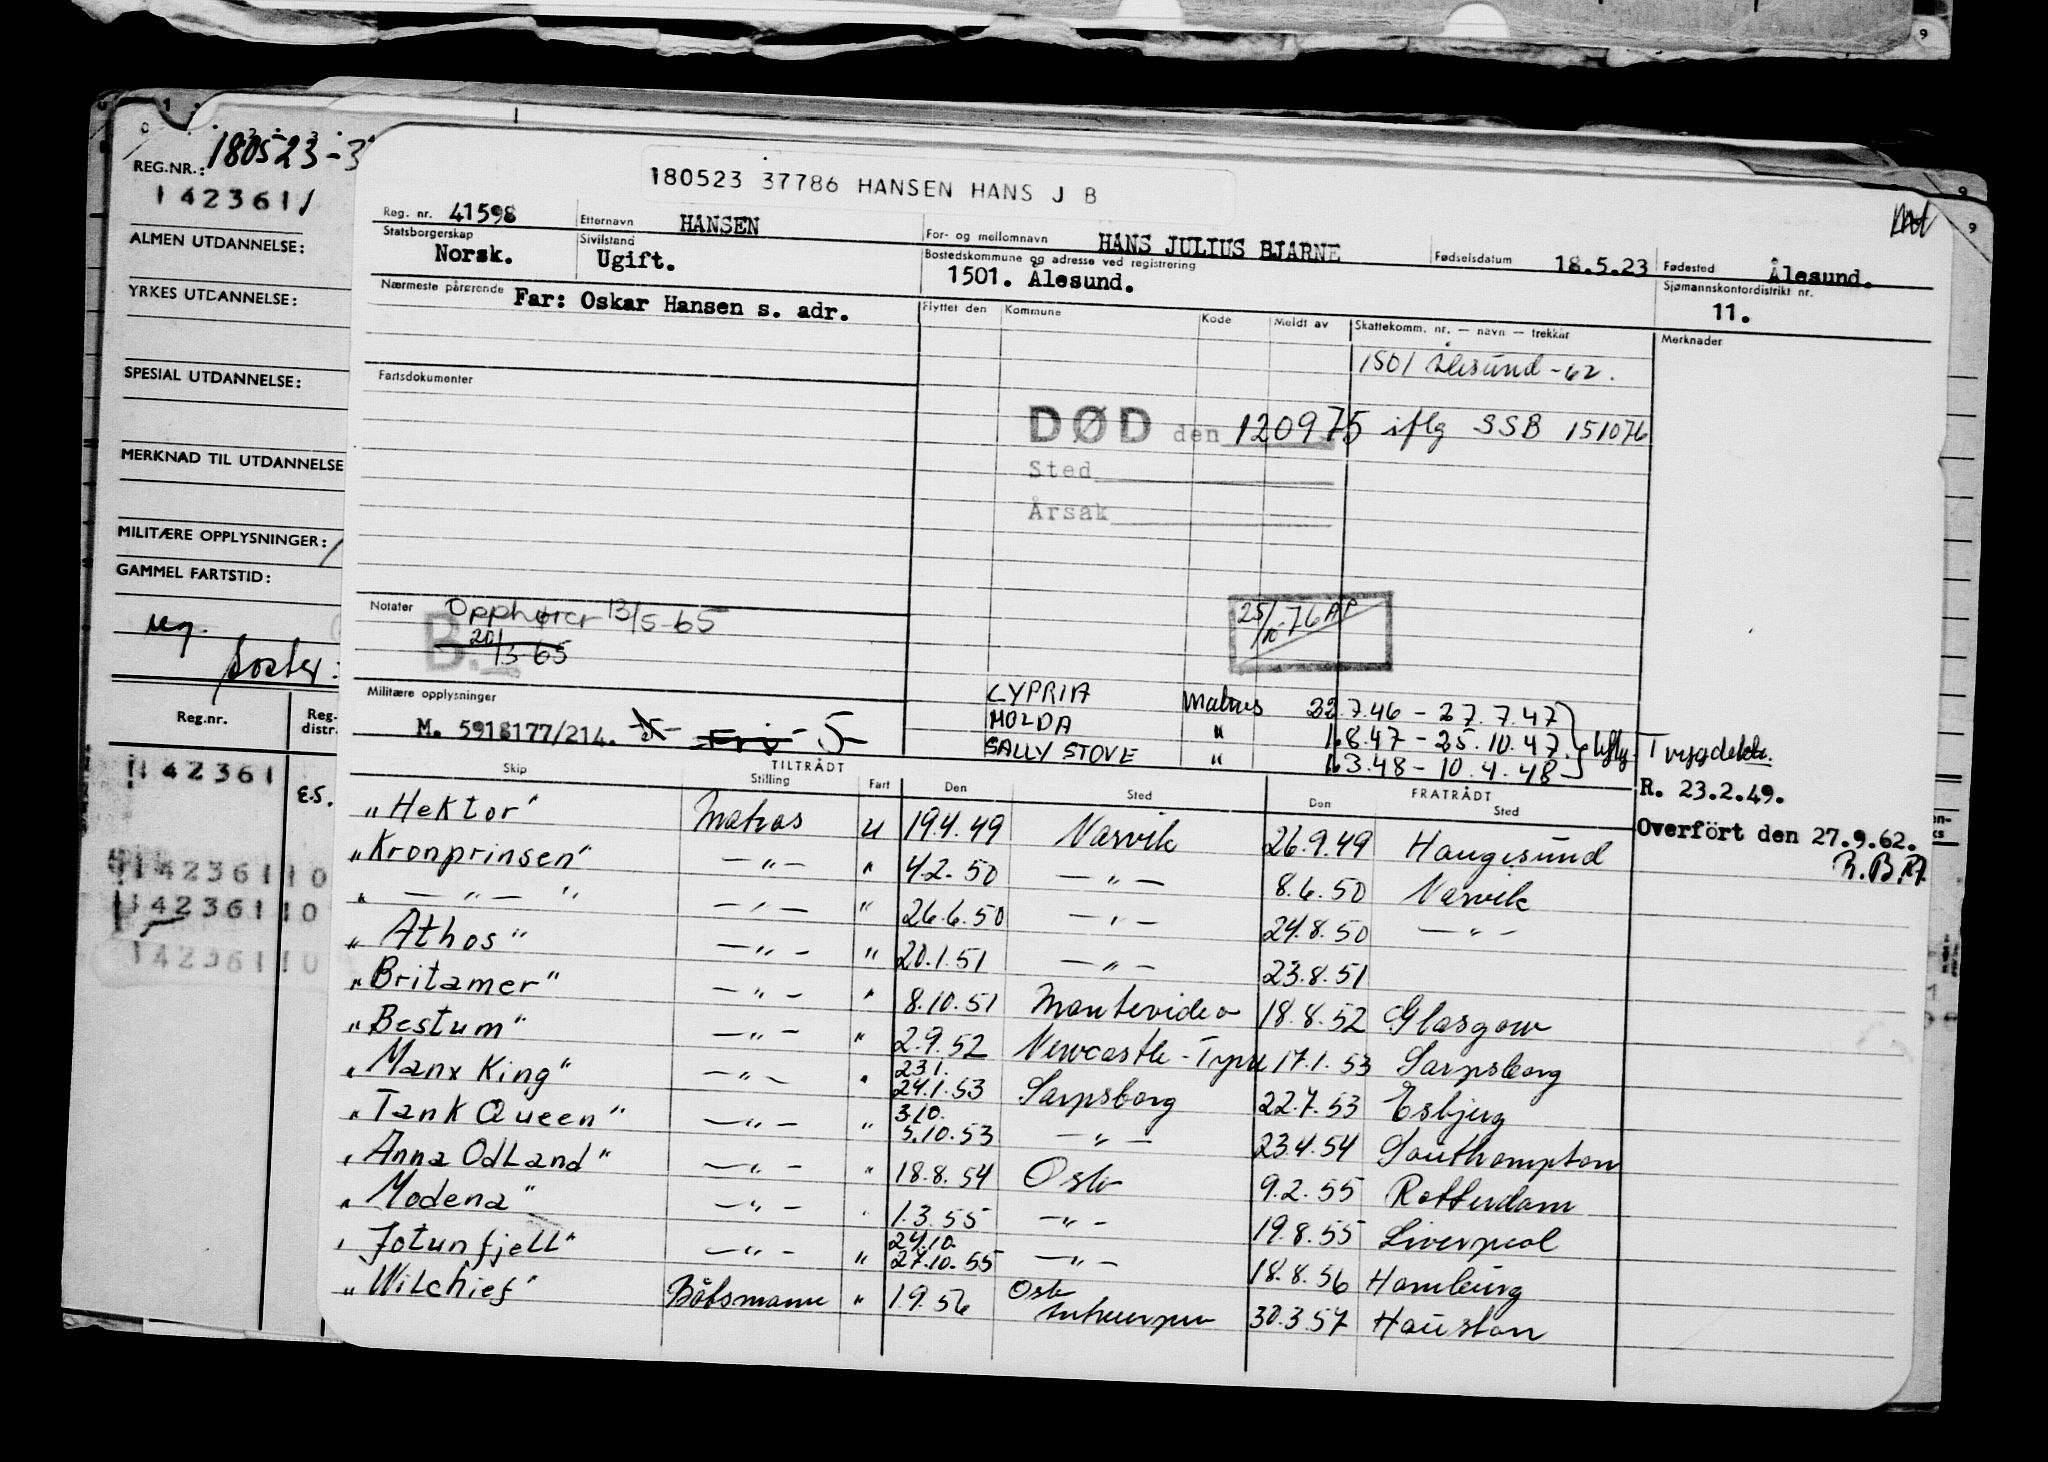 REG.NR.: 180523-3
142361
ALMEN UTDANNELSE:
YRKES UTDANNELSE:
SPESIAL UTDANNELSE:
MERKNAD TIL UTDANNELSE
MILITÆRE OPPLYSNINGER:
GAMMEL FARTSTID:
Reg.nr. Reg. distr.
142361 E.S.
142361 10
142361 10
142361 10
180523 37786 HANSEN HANS J B
Reg. nr. 41598 Etternavn HANSEN For- og mellomnavn HANS JULIUS BJARNE Fødselsdatum 18.5.23 Fødested Ålesund.
Statsborgerskap Norsk. Sivilstand Ugift. Bostedskommune og adresse ved registrering 1501. Ålesund. Sjømannskontordistrikt nr. 11.
Nærmeste pårørende Far: Oskar Hansen s. adr.
Flyttet den Kommune Kode Meldt av Skattekomm. nr. — navn — trekkår Merknader
1501 Ålesund -62.
Fartsdokumenter
DØD den 120975 iflg SSB 151076
Sted
Årsak
Notater Opphører 13/5-65
B. 20/3-65
25/10-76 AP
Militære opplysninger
M. 5918177/214. -5- Fri - 5-
CYPRIA Matros 22.7.46 - 27.7.47
MOLDA " 1.8.47 - 25.10.47 iflg. Trygdekk.
SALLY STOVE " 1.3.48 - 10.4.48
R. 23.2.49.
Overført den 27.9.62.
TILTRÅDT FRATRÅDT
Skip Stilling Fart Den Sted Den Sted
"Hektor" Matros U 19.4.49 Narvik 26.9.49 Haugesund
"Kronprinsen" —"— " 4.2.50 —"— 8.6.50 Narvik
" —"— " —"— " 26.6.50 —"— 24.8.50 —"—
"Athos" —"— " 20.1.51 —"— 23.8.51
"Britamer" —"— " 8.10.51 Montevideo 18.8.52 Glasgow
"Bestum" —"— " 2.9.52 Newcastle-Tyne 17.1.53 Sarpsborg
"Manx King" —"— " 23.1. 24.1.53 Sarpsborg 22.7.53 Esbjerg
"Tank Queen" —"— " 3.10. 5.10.53 —"— 23.4.54 Southampton
"Anna Odland" —"— " 18.8.54 Oslo 9.2.55 Rotterdam
"Modena" —"— " 1.3.55 —"— 19.8.55 Liverpool
"Jotunfjell" —"— " 24.10. 27.10.55 —"— 18.8.56 Hamburg
"Wilchief" Båtsmann " 1.9.56 Oslo Antwerpen 30.3.57 Houston